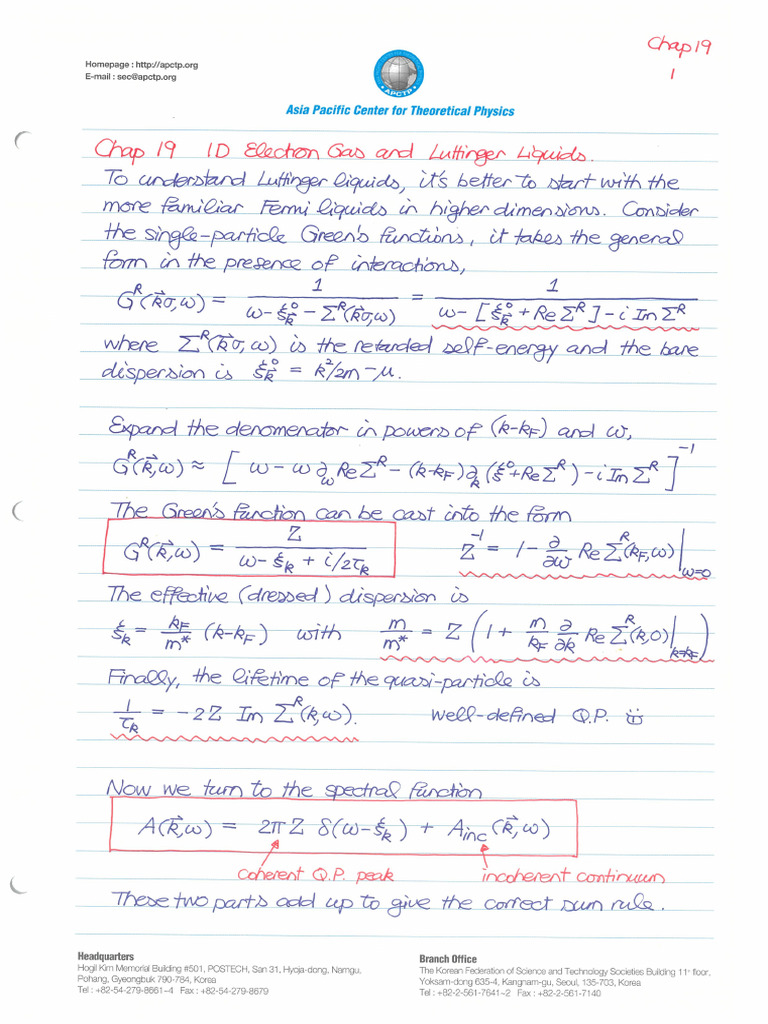 Chap 19
1
Homepage : http://apctp.org
E-mail : sec@apctp.org
APCTP
Asia Pacific Center for Theoretical Physics
Chap 19 1D Electron Gas and Luttinger Liquids.
To understand Luttinger liquids, it's better to start with the
more familiar Fermi liquids in higher dimensions. Consider
the single-particle Green's functions, it takes the general
form in the presence of interactions,
G^R(k⃗σ,ω) = 1 / (ω - ξ_k^0 - Σ^R(k⃗σ,ω)) = 1 / (ω - [ξ_k^0 + Re Σ^R] - i Im Σ^R)
where Σ^R(k⃗σ,ω) is the retarded self-energy and the bare
dispersion is ξ_k^0 = k²/2m - μ.
Expand the denomenator in powers of (k-k_F) and ω,
G^R(k⃗,ω) ≈ [ω - ω ∂_ω Re Σ^R - (k-k_F) ∂_k (ξ^0 + Re Σ^R) - i Im Σ^R]^-1
The Green's function can be cast into the form
G^R(k⃗,ω) = Z / (ω - ξ_k + i/2τ_k) Z^-1 = 1 - ∂/∂ω Re Σ^R(k_F,ω)|_ω=0
The effective (dressed) dispersion is
ξ_k = k_F/m* (k-k_F) with m/m* = Z (1 + m/k_F ∂/∂k Re Σ^R(k,0)|_k=k_F)
Finally, the lifetime of the quasi-particle is
1/τ_k = -2Z Im Σ^R(k,ω). well-defined Q.P.
Now we turn to the spectral function
A(k⃗,ω) = 2πZ δ(ω-ξ_k) + A_inc(k⃗,ω)
coherent Q.P. peak incoherent continuum
These two parts add up to give the correct sum rule.
Headquarters
Hogil Kim Memorial Building #501, POSTECH, San 31, Hyoja-dong, Namgu,
Pohang, Gyeongbuk 790-784, Korea
Tel : +82-54-279-8661~4 Fax : +82-54-279-8679
Branch Office
The Korean Federation of Science and Technology Societies Building 11ᵗ floor,
Yoksam-dong 635-4, Kangnam-gu, Seoul, 135-703, Korea
Tel : +82-2-561-7641~2 Fax : +82-2-561-7140